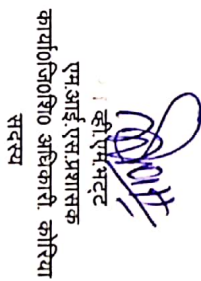 व्ही.एम.भट्ट
एम.आई.एस.प्रशासक
कार्या0जि0शि0 अधिकारी. कोरिया
सदस्य